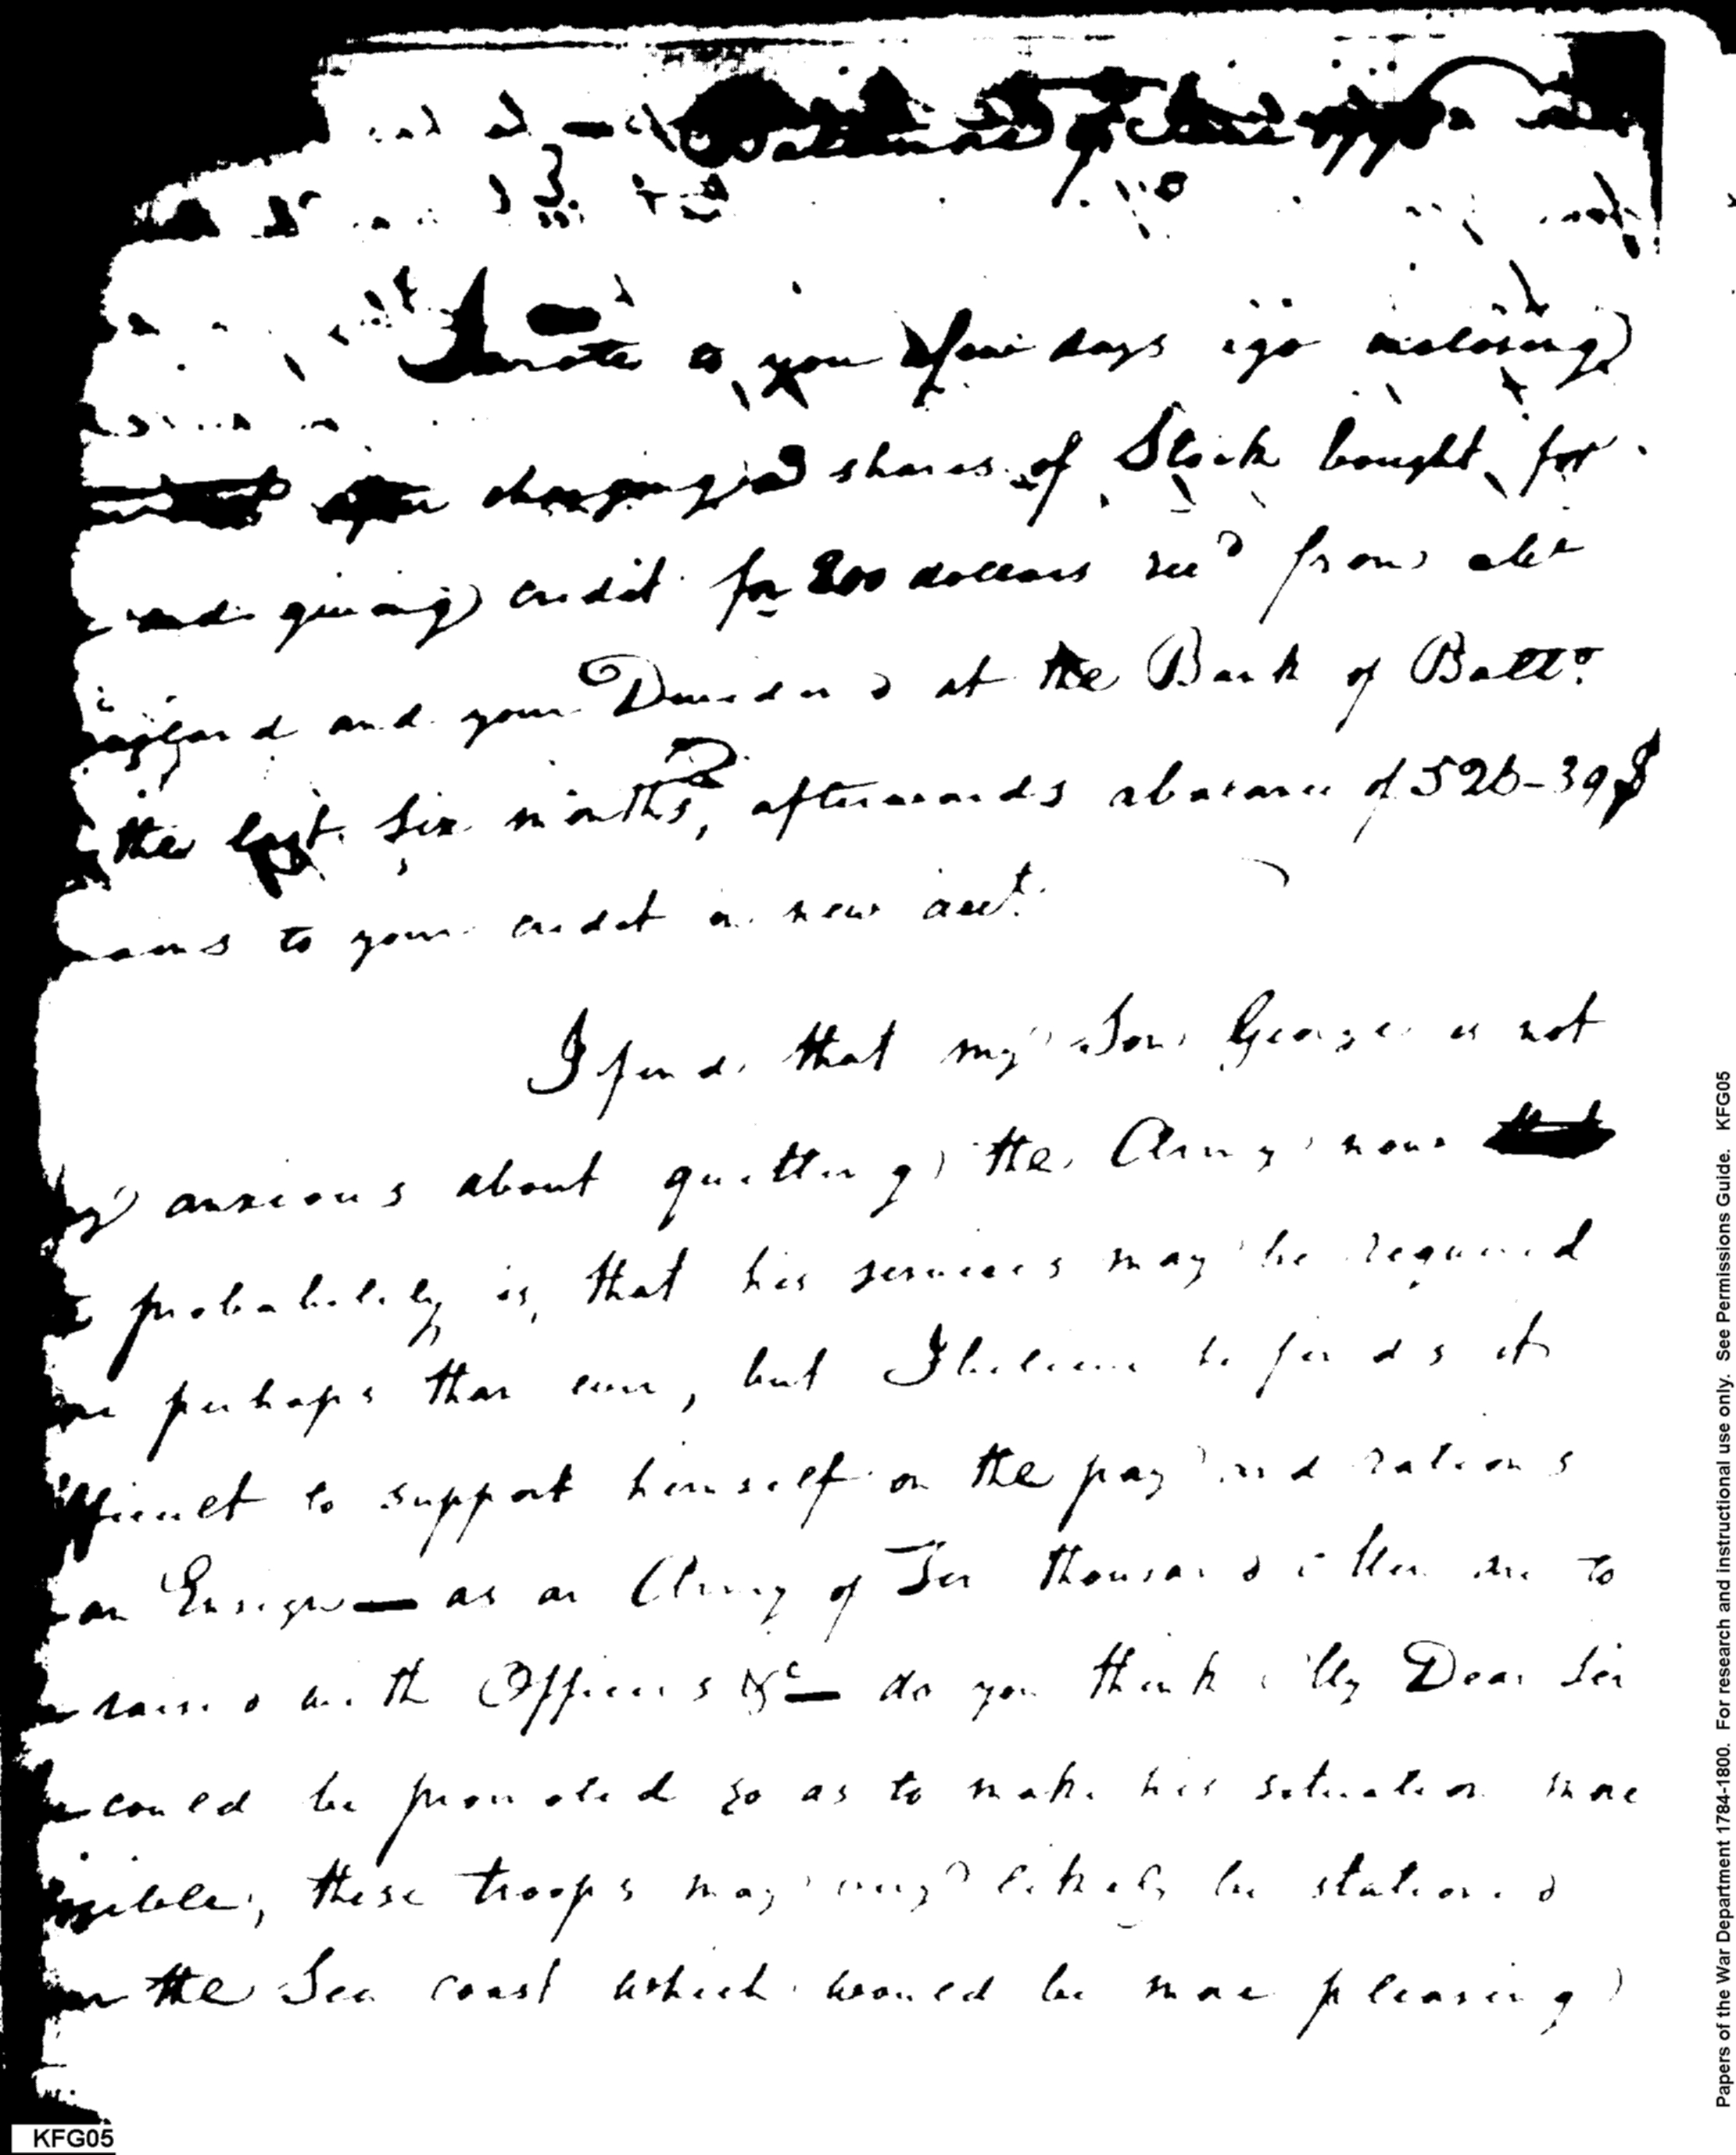 Baltimore
I wrote to you a few days ago enclosing
charging 2 shares of Stock bought for
and giving credit for 200 dollars recd from
and your Dividend at the Bank of Balto
the last six months, afterwards a balance of 526-39
to your credit in new acct.
I find that my Son George is not
anxious about quitting the Army now
probability is, that his services may be required
perhaps than ever, but I believe he finds it
to support himself on the pay and rations
an Ensign — as an Army of Ten thousand Men are to
raised with Officers &c — do you think My Dear Sir
could be promoted so as to make his situation more
these troops may very likely be stationed
the Sea coast which would be more pleasing
Papers of the War Department 1784-1800. For research and instructional use only. See Permissions Guide. KFG05
KFG05